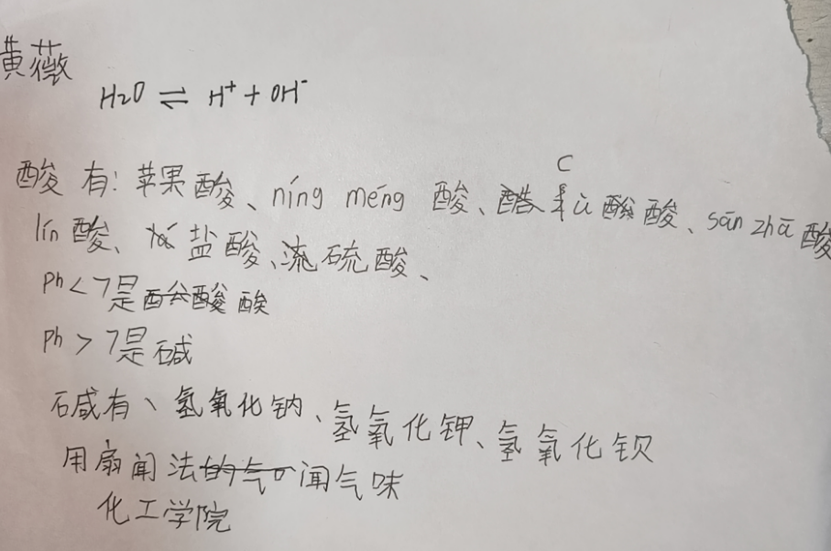 黄薇
H2O ⇌ H⁺ + OH⁻
酸 有: 苹果酸、níng méng 酸、cù 酸、sān zhā 酸
lín 酸、盐酸、硫酸、
Ph<7是酸
Ph > 7是碱
碱有、氢氧化钠、氢氧化钾、氢氧化钡
用扇闻法闻气味
化工学院